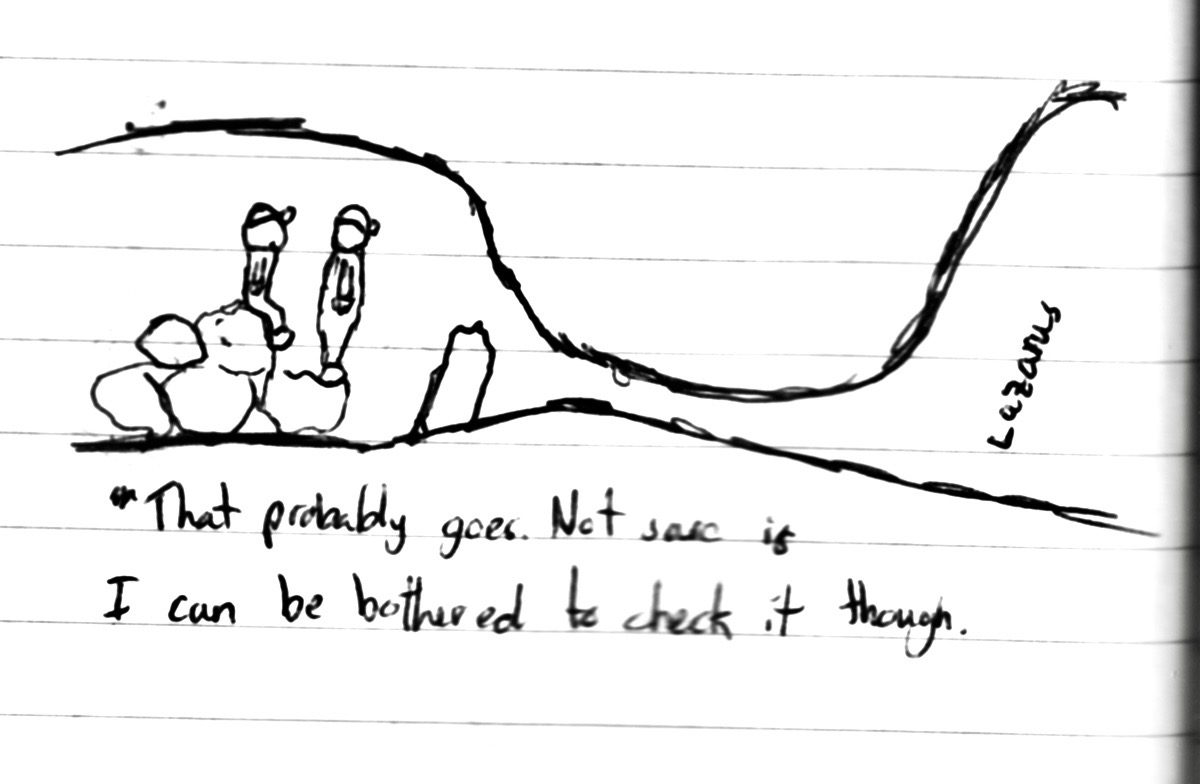 Lazarus
"That probably goes. Not sure if
I can be bothered to check it though.